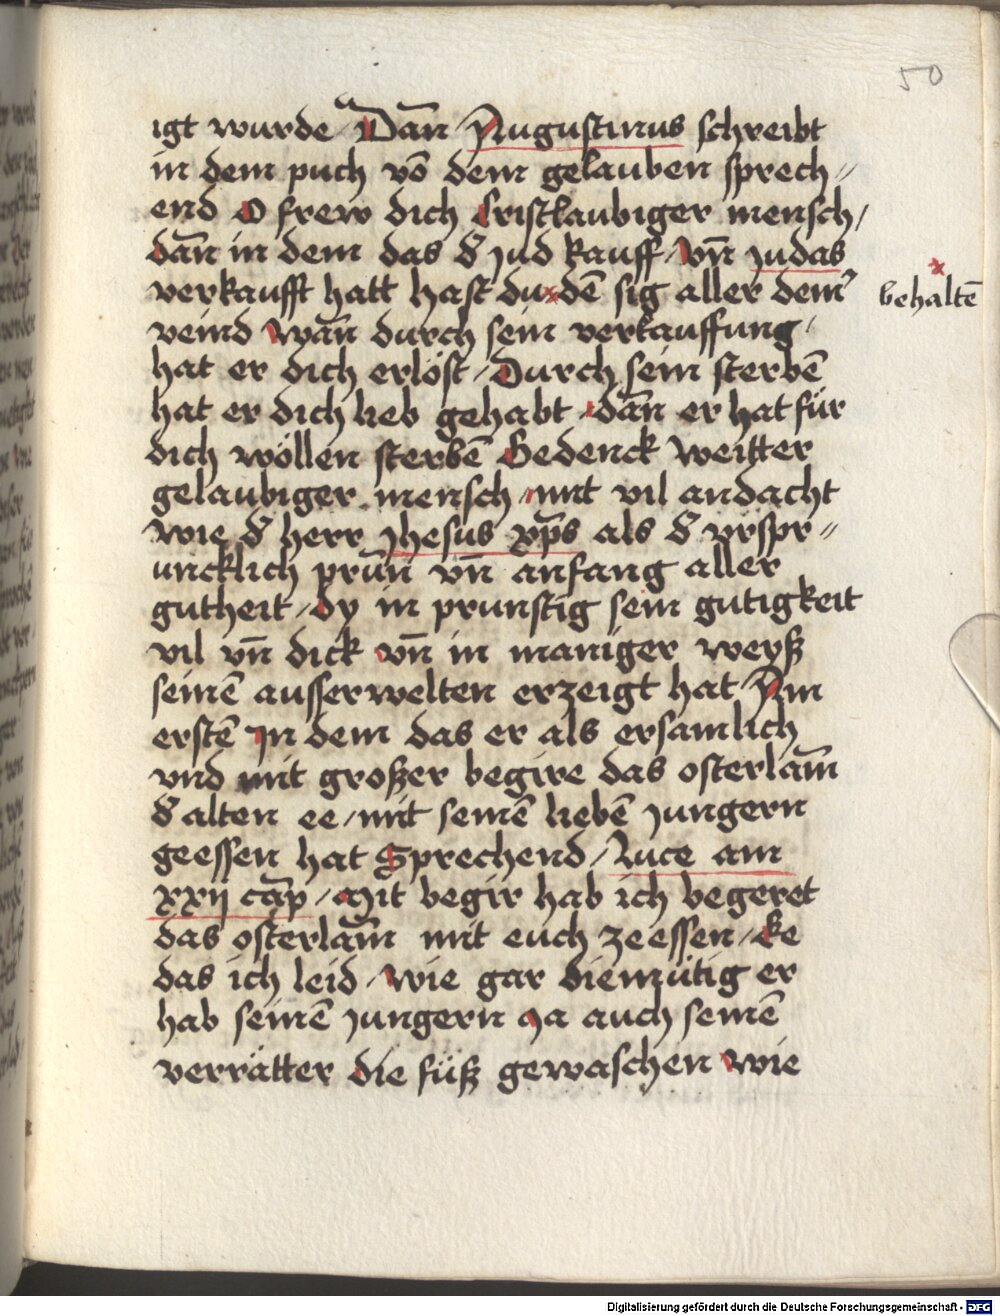 50
igt wurde / Dan̄ Augustinus schreibt
in dem puch vō dem gelauben sprech //
end O frew dich Cristlaubiger mensch /
dan̄ in dem das d̕ jud kauff / vn̄ judas
verkaufft hatt hast du × dē sig aller dein̕
× behaltē
veind wan̄ durch sein verkauffung /
hat er dich erlöst / Durch sein sterbē
hat er dich lieb gehabt / dan̄ er hat für
dich wöllen sterbē Gedenck weitter
gelaubiger mensch / mit vil andacht
wie d̕ herr jhesus xp̄s als d̕ vrspr //
uncklich prūn̄ vn̄ anfang aller
gutheit / dy in prunstig sein gutigkeit
vil vn̄ dick vn̄ in maniger weyß
seinē ausserwelten erzeigt hat / Am
erstē jn dem das er als ersamlich
vnd mit großer begire das osterlam̄
d̕ alten ee / mit seinē liebē jungern
geessen hat Sprechend / Luce am
xxij cap̄ / Mit begir hab ich begeret
das osterlam̄ mit euch zeessen / Ee
das ich leid / wie gar diemütig er
hab seinē jungern Ja auch seinē
verrätter die füß gewaschen wie
Digitalisierung gefördert durch die Deutsche Forschungsgemeinschaft - DFG